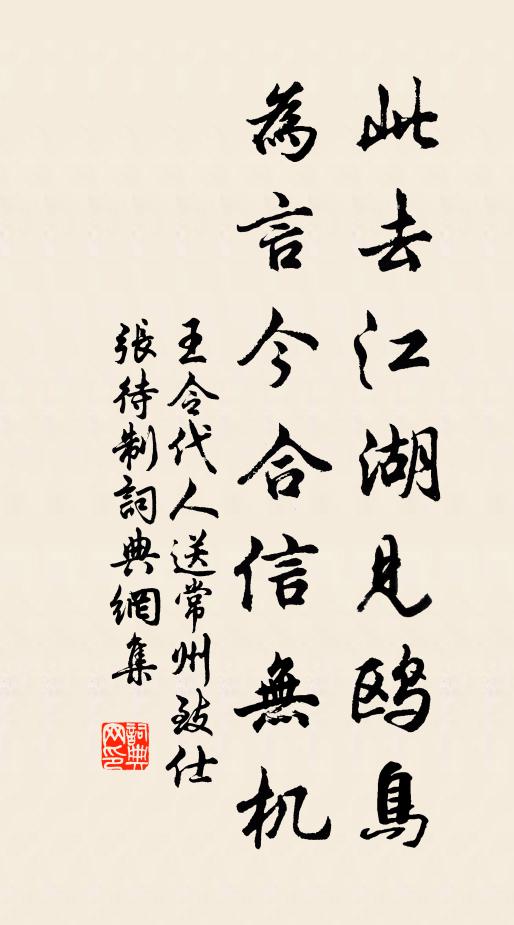 此去江湖見鸥鳥
為言今合信無机
王令代人送常州致仕
張待制詞典網集
詞典网印